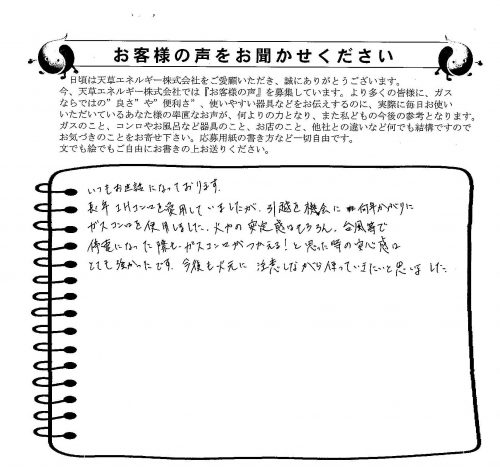 お客様の声をお聞かせください
日頃は天草エネルギー株式会社をご愛顧いただき、誠にありがとうございます。
今、天草エネルギー株式会社では『お客様の声』を募集しています。より多くの皆様に、ガス
ならではの”良さ”や”便利さ”、使いやすい器具などをお伝えするのに、実際に毎日お使い
いただいているあなた様の率直なお声が、何よりの力となり、また私どもの今後の参考となります。
ガスのこと、コンロやお風呂など器具のこと、お店のこと、他社との違いなど何でも結構ですので
お気づきのことをお寄せ下さい。応募用紙の書き方など一切自由です。
文でも絵でもご自由にお書きの上お送りください。
いつもお世話になっております。
長年IHコンロを愛用していましたが、引越を機会に何年かぶりに
ガスコンロを使用しました。火力の安定感はもちろん、台風等で
停電になった際も、ガスコンロがつかえる!と思った時の安心感は
とても強かったです。今後も火元に注意しながら使っていきたいと思いました。